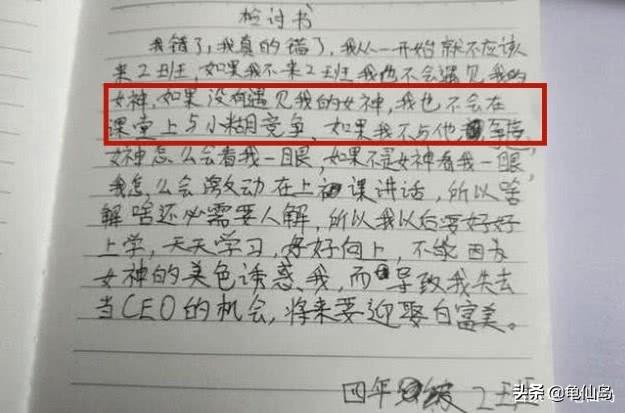 检讨书
我错了,我真的错了,我从一开始就不应该
来2班,如果我不来2班,我也不会遇见我的
女神,如果没有遇见我的女神,我也不会在
课堂上与小糊竞争,如果我不与他争,
女神怎么会看我一眼,如果不是女神看我一眼,
我怎么会激动在上课讲话,所以啥
解啥还必需要人解,所以我以后要好好
上学,天天学习,好好向上,不能因为
女神的美色诱惑、我,而导致我失去
当CEO的机会,将来要迎娶白富美。
四年级2班
头条@龟仙岛